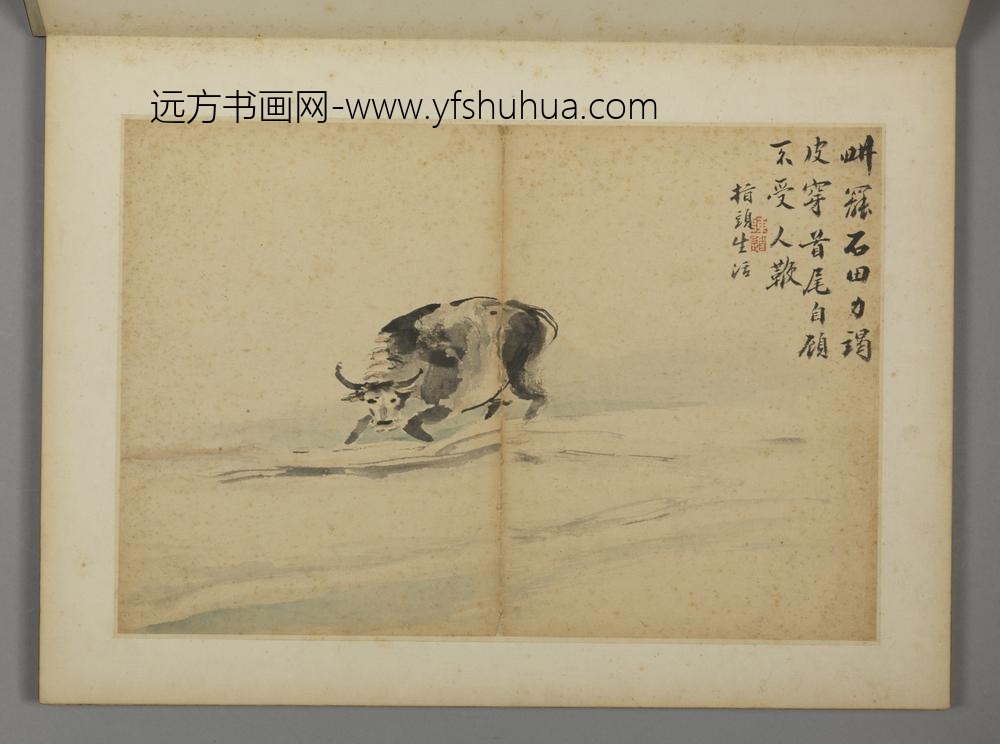 远方书画网-www.yfshuhua.com
畊罷石田力竭
皮穿首尾自顧
不受人鞭
指頭生活